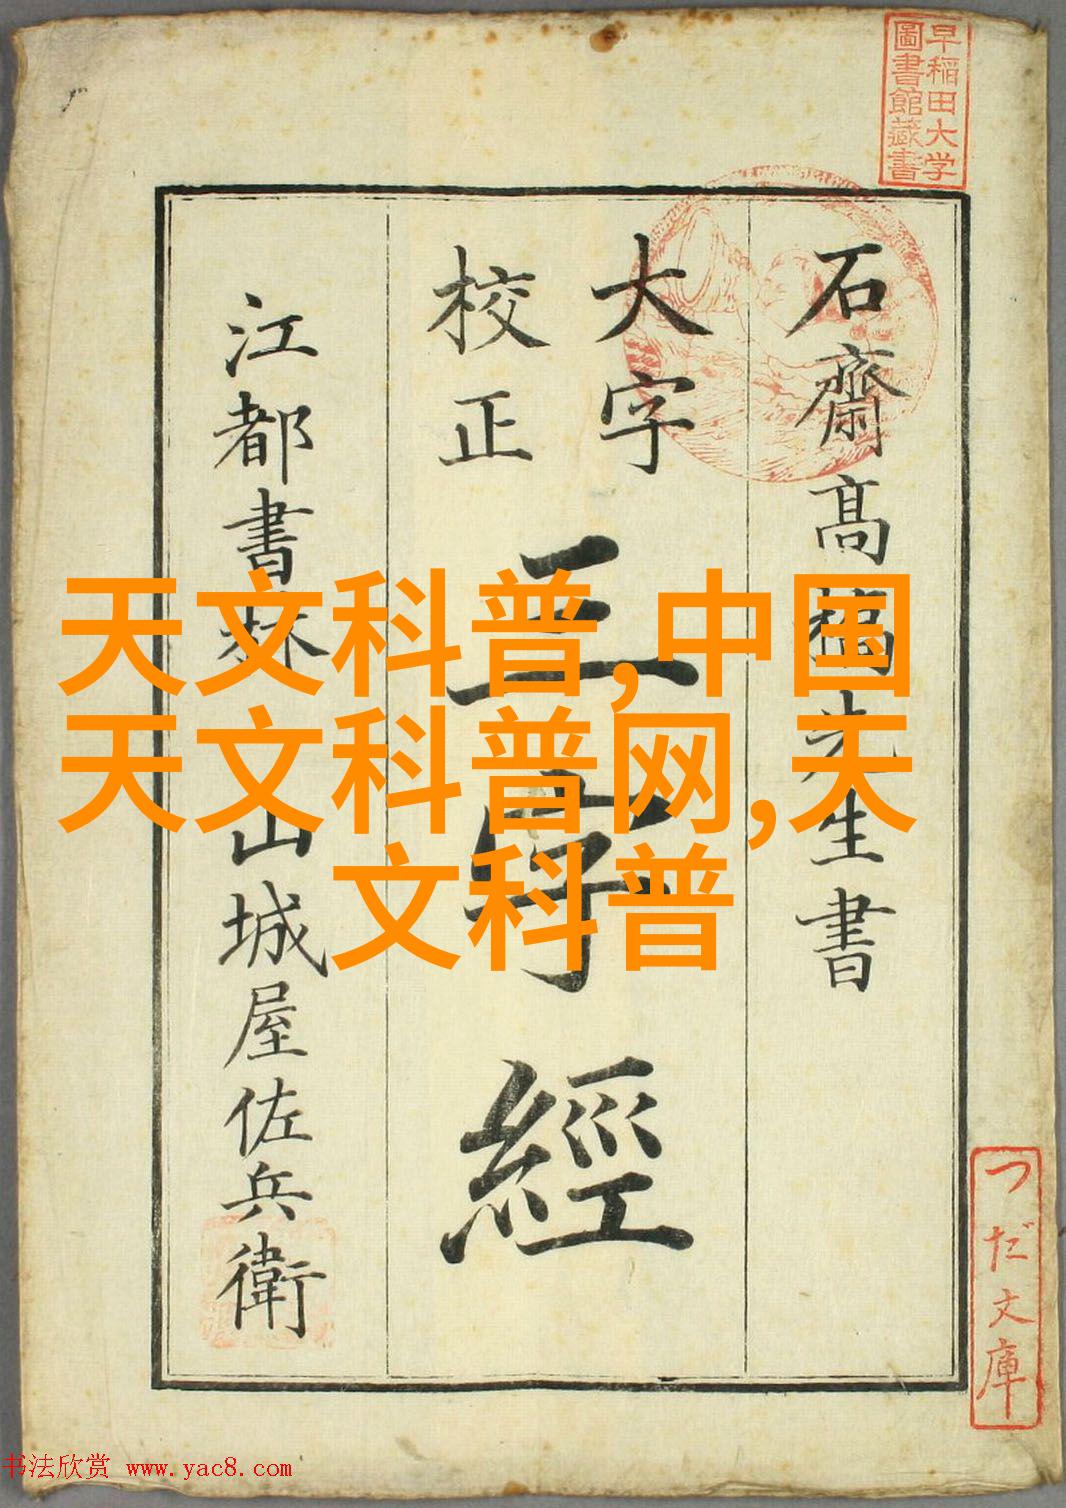 早稲田大学
圖書館藏書
石齋髙橋先生書
大字
校正
三字經
江都書林 山城屋佐兵衛
つだ文庫
天文科普,中国
天文科普网,天
文科普
书法欣赏 www.yac8.com